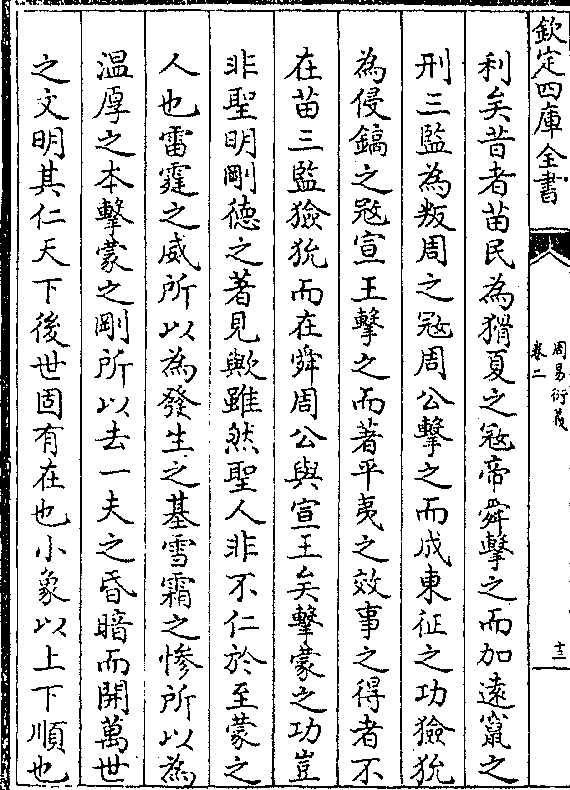 欽定四庫全書
周易衍義
卷二
十三
利矣昔者苗民為猾夏之冦帝舜擊之而加遠竄之
刑三監為叛周之冦周公擊之而成東征之功獫狁
為侵鎬之冦宣王擊之而著平夷之效事之得者不
在苗三監獫狁而在舜周公與宣王矣擊蒙之功豈
非聖明剛德之著見歟雖然聖人非不仁於至蒙之
人也雷霆之威所以為發生之基雪霜之慘所以為
溫厚之本擊蒙之剛所以去一夫之昏暗而開萬世
之文明其仁天下後世固有在也小象以上下順也